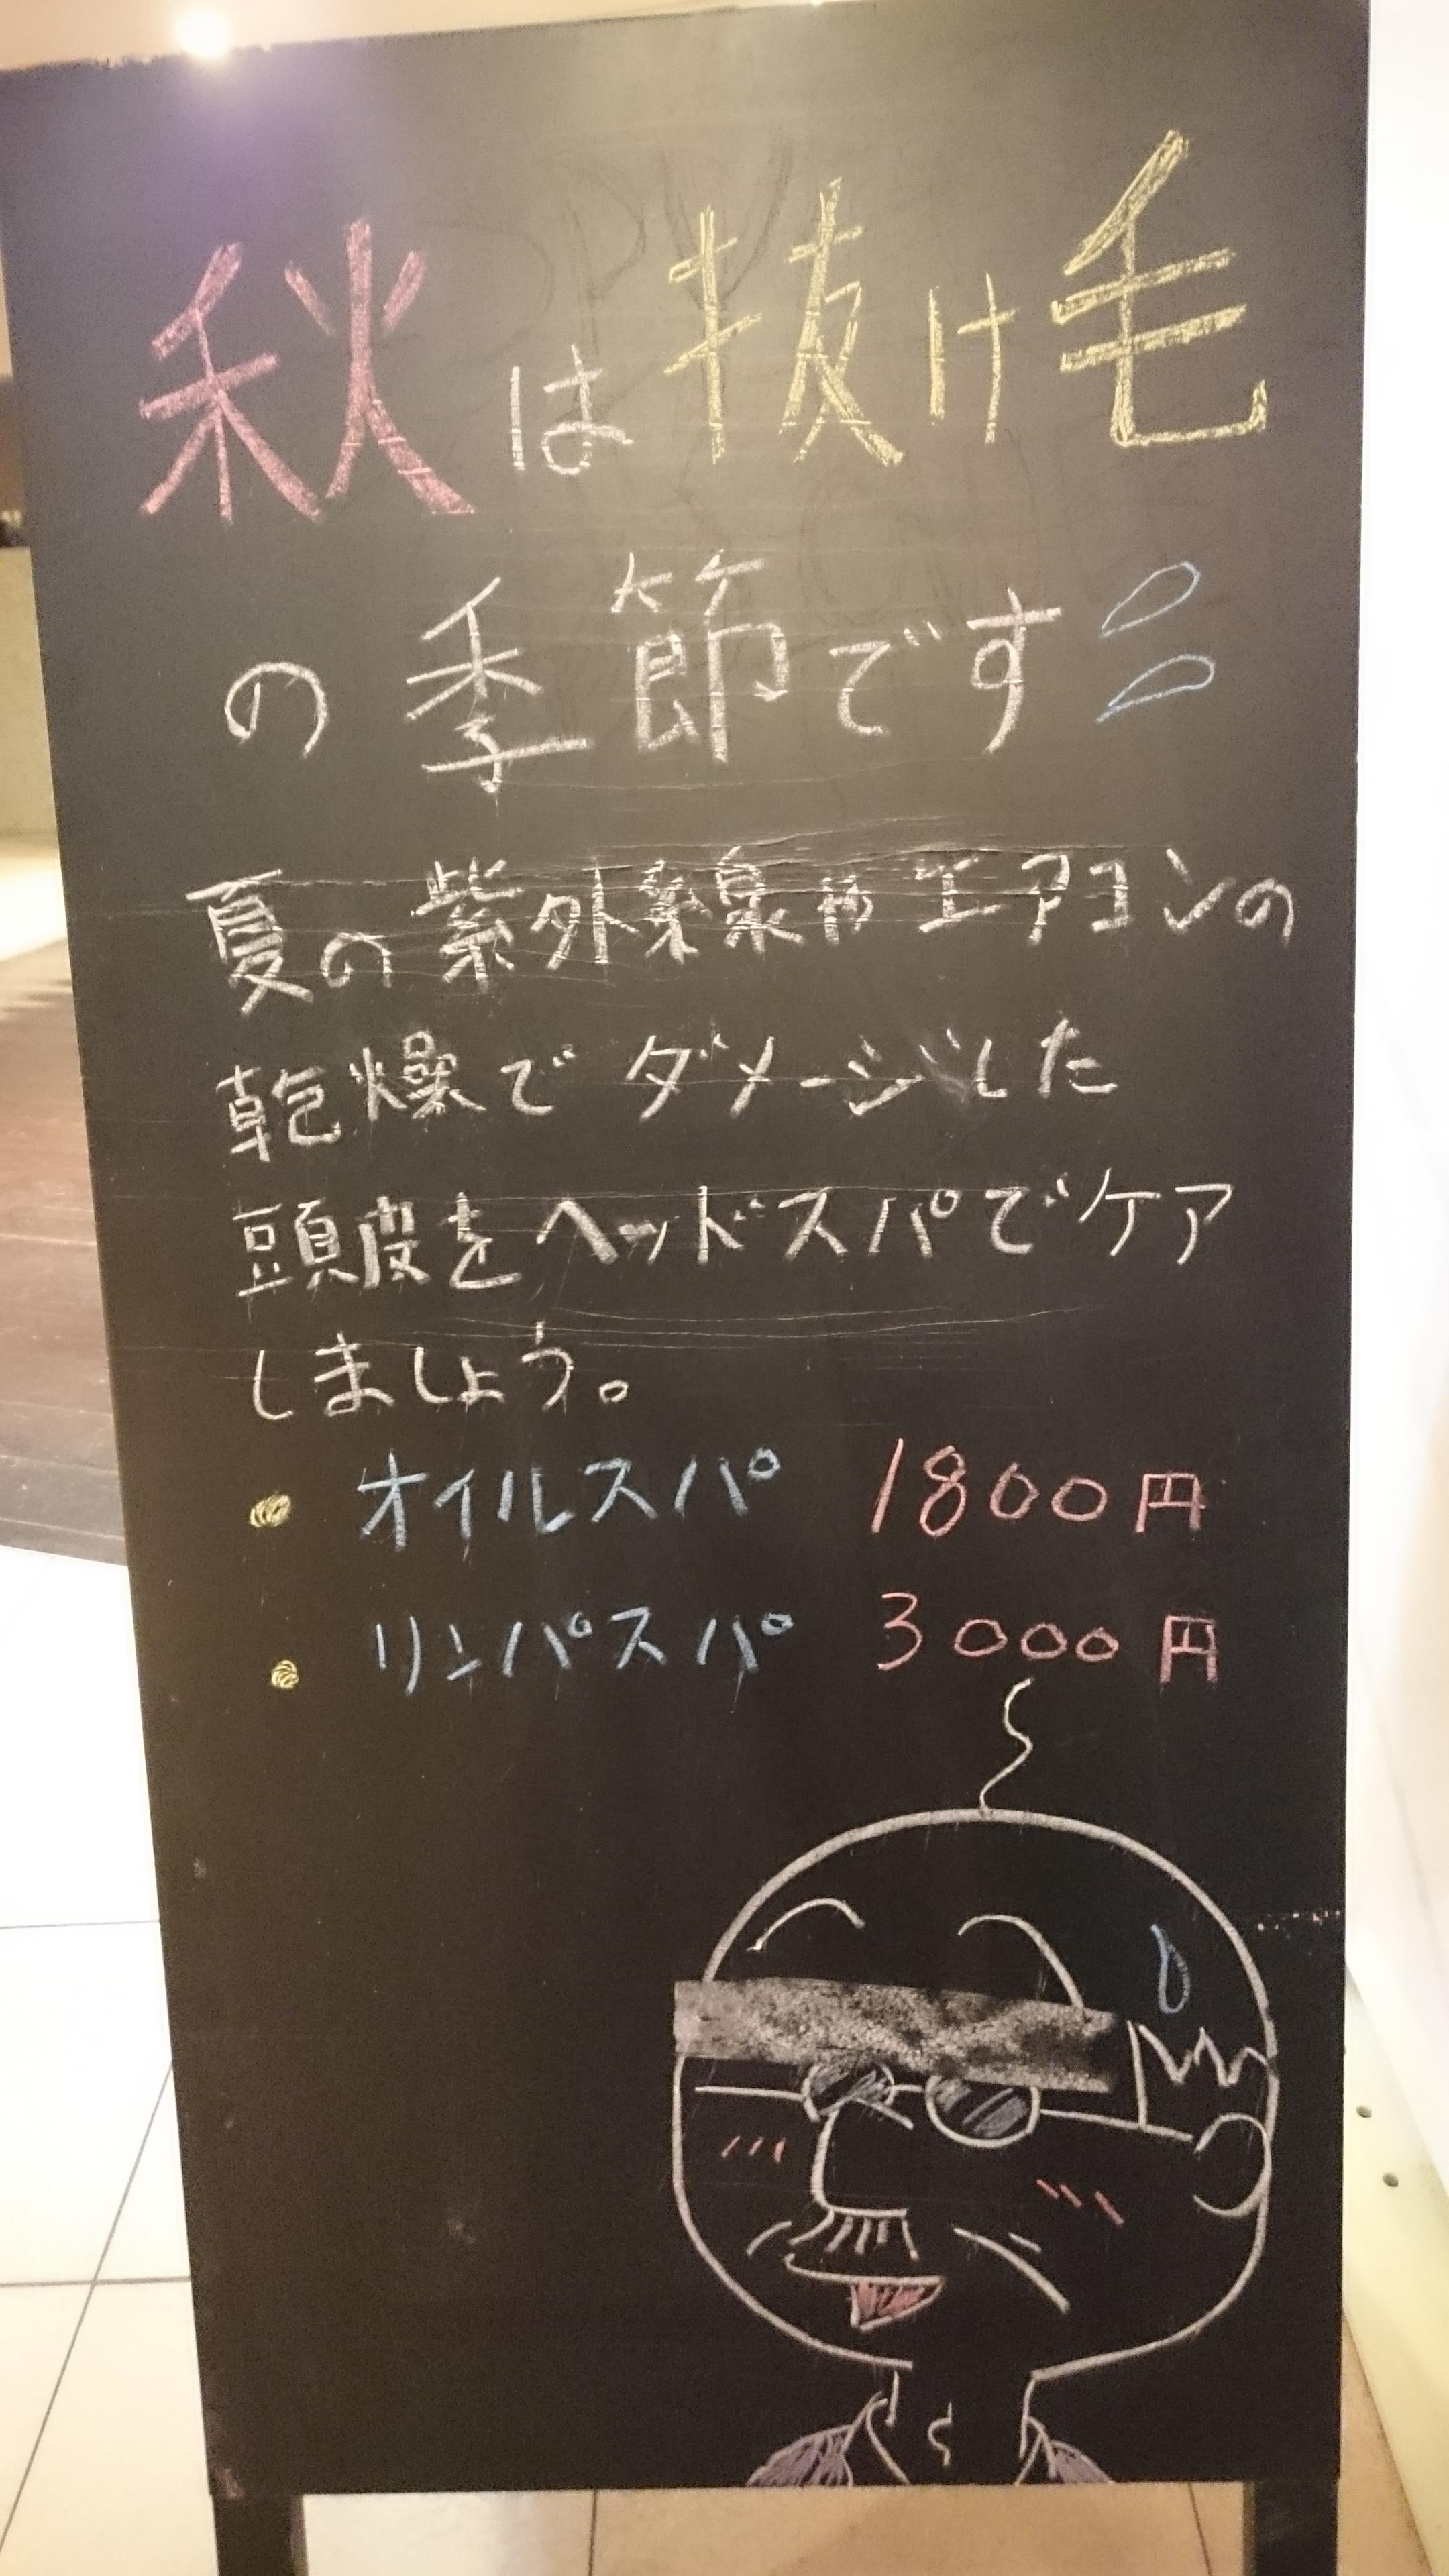 秋は抜け毛
の季節です
夏の紫外線やエアコンの
乾燥でダメージした
頭皮をヘッドスパでケア
しましょう。
・オイルスパ 1800円
・リンパスパ 3000円